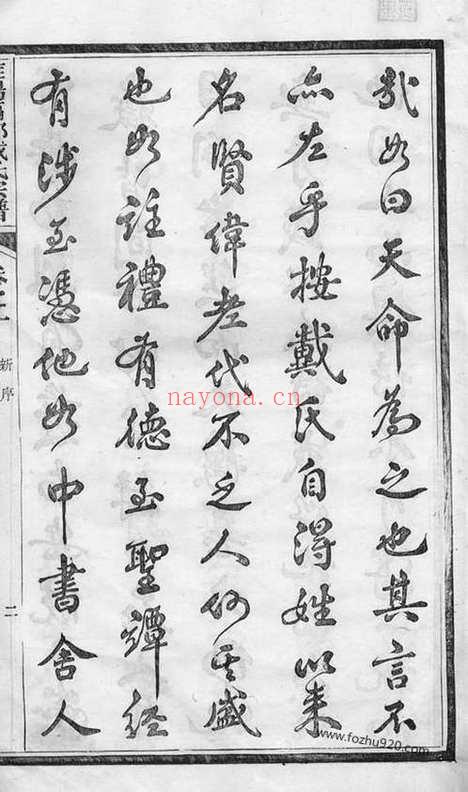 哉如曰天命為之也其言不
亦左乎按戴氏自得姓以來
名賢偉老代不乏人何其盛
也如註禮有德與聖譚經
有涉與憑他如中書舍人
戴氏宗譜
新序
二
nayona.cn
www.fozhu920.com